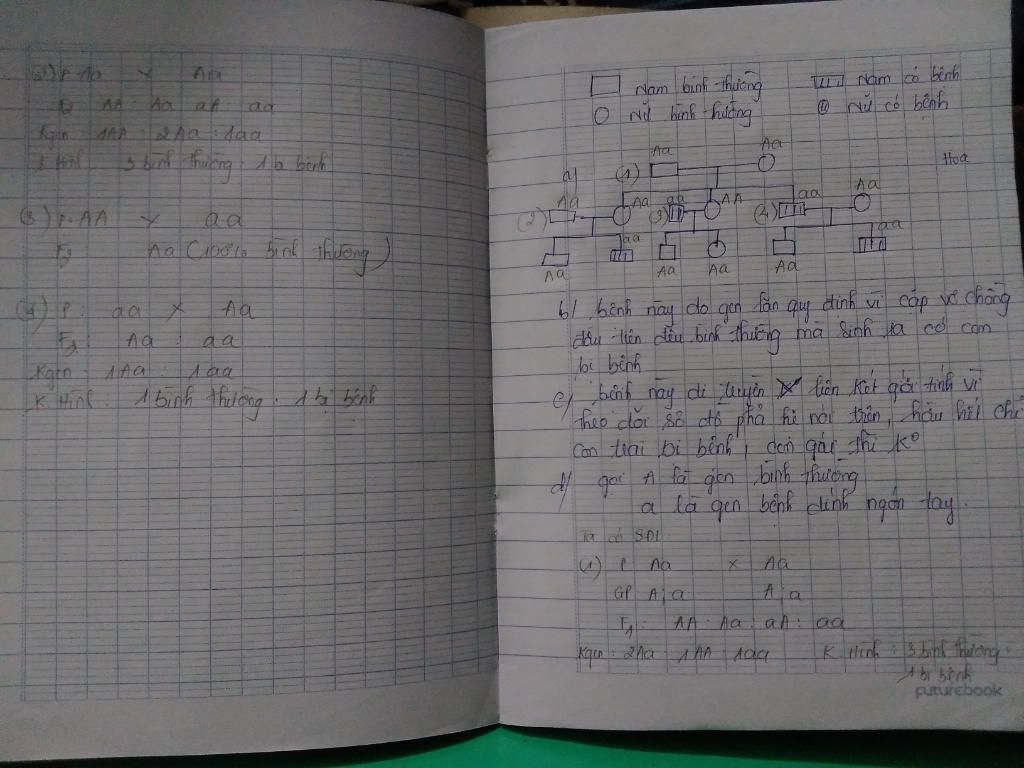 (2) P Aa × Aa
F2 AA : Aa aA : aa
Kgen : 1AA : 2Aa : 1aa
K Hình 3 bình thường : 1 bị bệnh
(3) P : AA × aa
F2 Aa (100% bình thường)
(4) P : aa × Aa
F2 : Aa : aa
Kgen : 1Aa : 1aa
K. Hình : 1 bình thường . 1 bị bệnh
Nam bình thường
Nam có bệnh
Nữ bình thường
Nữ có bệnh
a) (1) Aa Aa
Hoa
(2) Aa Aa (3) aa AA (4) aa Aa
aa aa
Aa Aa Aa Aa
b) bệnh này do gen lặn quy định vì cặp vợ chồng
đầu tiên đều bình thường mà sinh ra có con
bị bệnh
c) bệnh này di truyền liên kết giới tính vì
theo dõi sơ đồ phả hệ nói trên, hầu hết chỉ
con trai bị bệnh, con gái thì K°
d) gọi A là gen bình thường
a là gen bệnh dính ngón tay.
Ta có SĐL
(1) P Aa × Aa
GP A ; a A ; a
F1 : AA : Aa : aA : aa
Kgen : 2Aa 1AA 1aa K Hình : 3 bình thường :
1 bị bệnh
futurebook